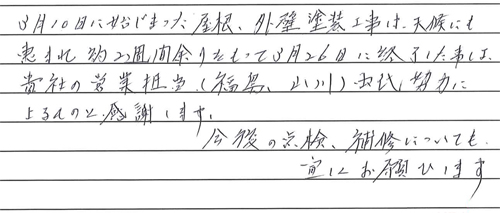 3月10日に始まった屋根、外壁塗装工事は、天候にも
恵まれ約2週間余りたもって3月26日に終了した事は、
貴社の営業担当(福島、山川)氏 努力に
よるものと感謝します。
今後の点検、補修についても、
宜しくお願ひます